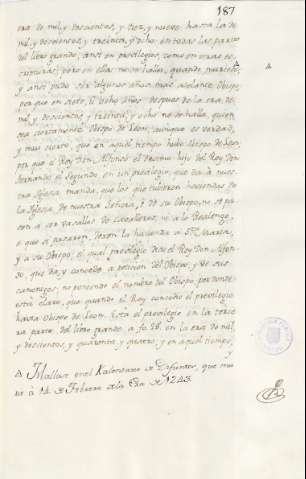 187
era de mil, y ducientos, y diez, y nueve hasta la de
mil, y ducientos, y treinta, y ocho en todas las partes
del libro grande, ansi en previlegios, como en otras es-
cripturas; pero en ellas no se halla, quando
y ansi pudo ser algunos años mas adelante Obispo,
por que en siete, u ocho años despues de la era de
mil, y ducientos, y treinta, y ocho no se halla, quien
sea ciertamente Obispo de Leon, aunque es verdad,
y mui cierto, que en aquel tiempo hubo Obispo de Leon,
por que el Rey Don Alfonso el Decimo hijo del Rey Don
Fernando el Segundo en un previlegio, que da à nues-
tra Iglesia manda, que los que tubieron haciendas de
la Iglesia de nuestra Señora, è de su Obispo, no se pa-
sen a ser vasallos de Cavalleros, ni à lo Realengo,
è que si pasaren, dexen la hacienda a Sta. Maria,
y a su Obispo, el qual previlegio dice el Rey Don Alfon-
so, que da, y concede a peticion del Obispo, y de sus
canonigos, no poniendo el nombre del Obispo, por donde
està claro, que quando el Rey concedio el previlegio
havia Obispo de Leon. Està el previlegio en la terce-
ra parte del libro grande a fo. 28. en la era de mil,
y ducientos, y quarenta, y quatro, y en aquel tiempo,
y
Δ Hallase en el Kalendario de Difuntos, que mu-
rio à 14 de Febrero de la Era de 1243.